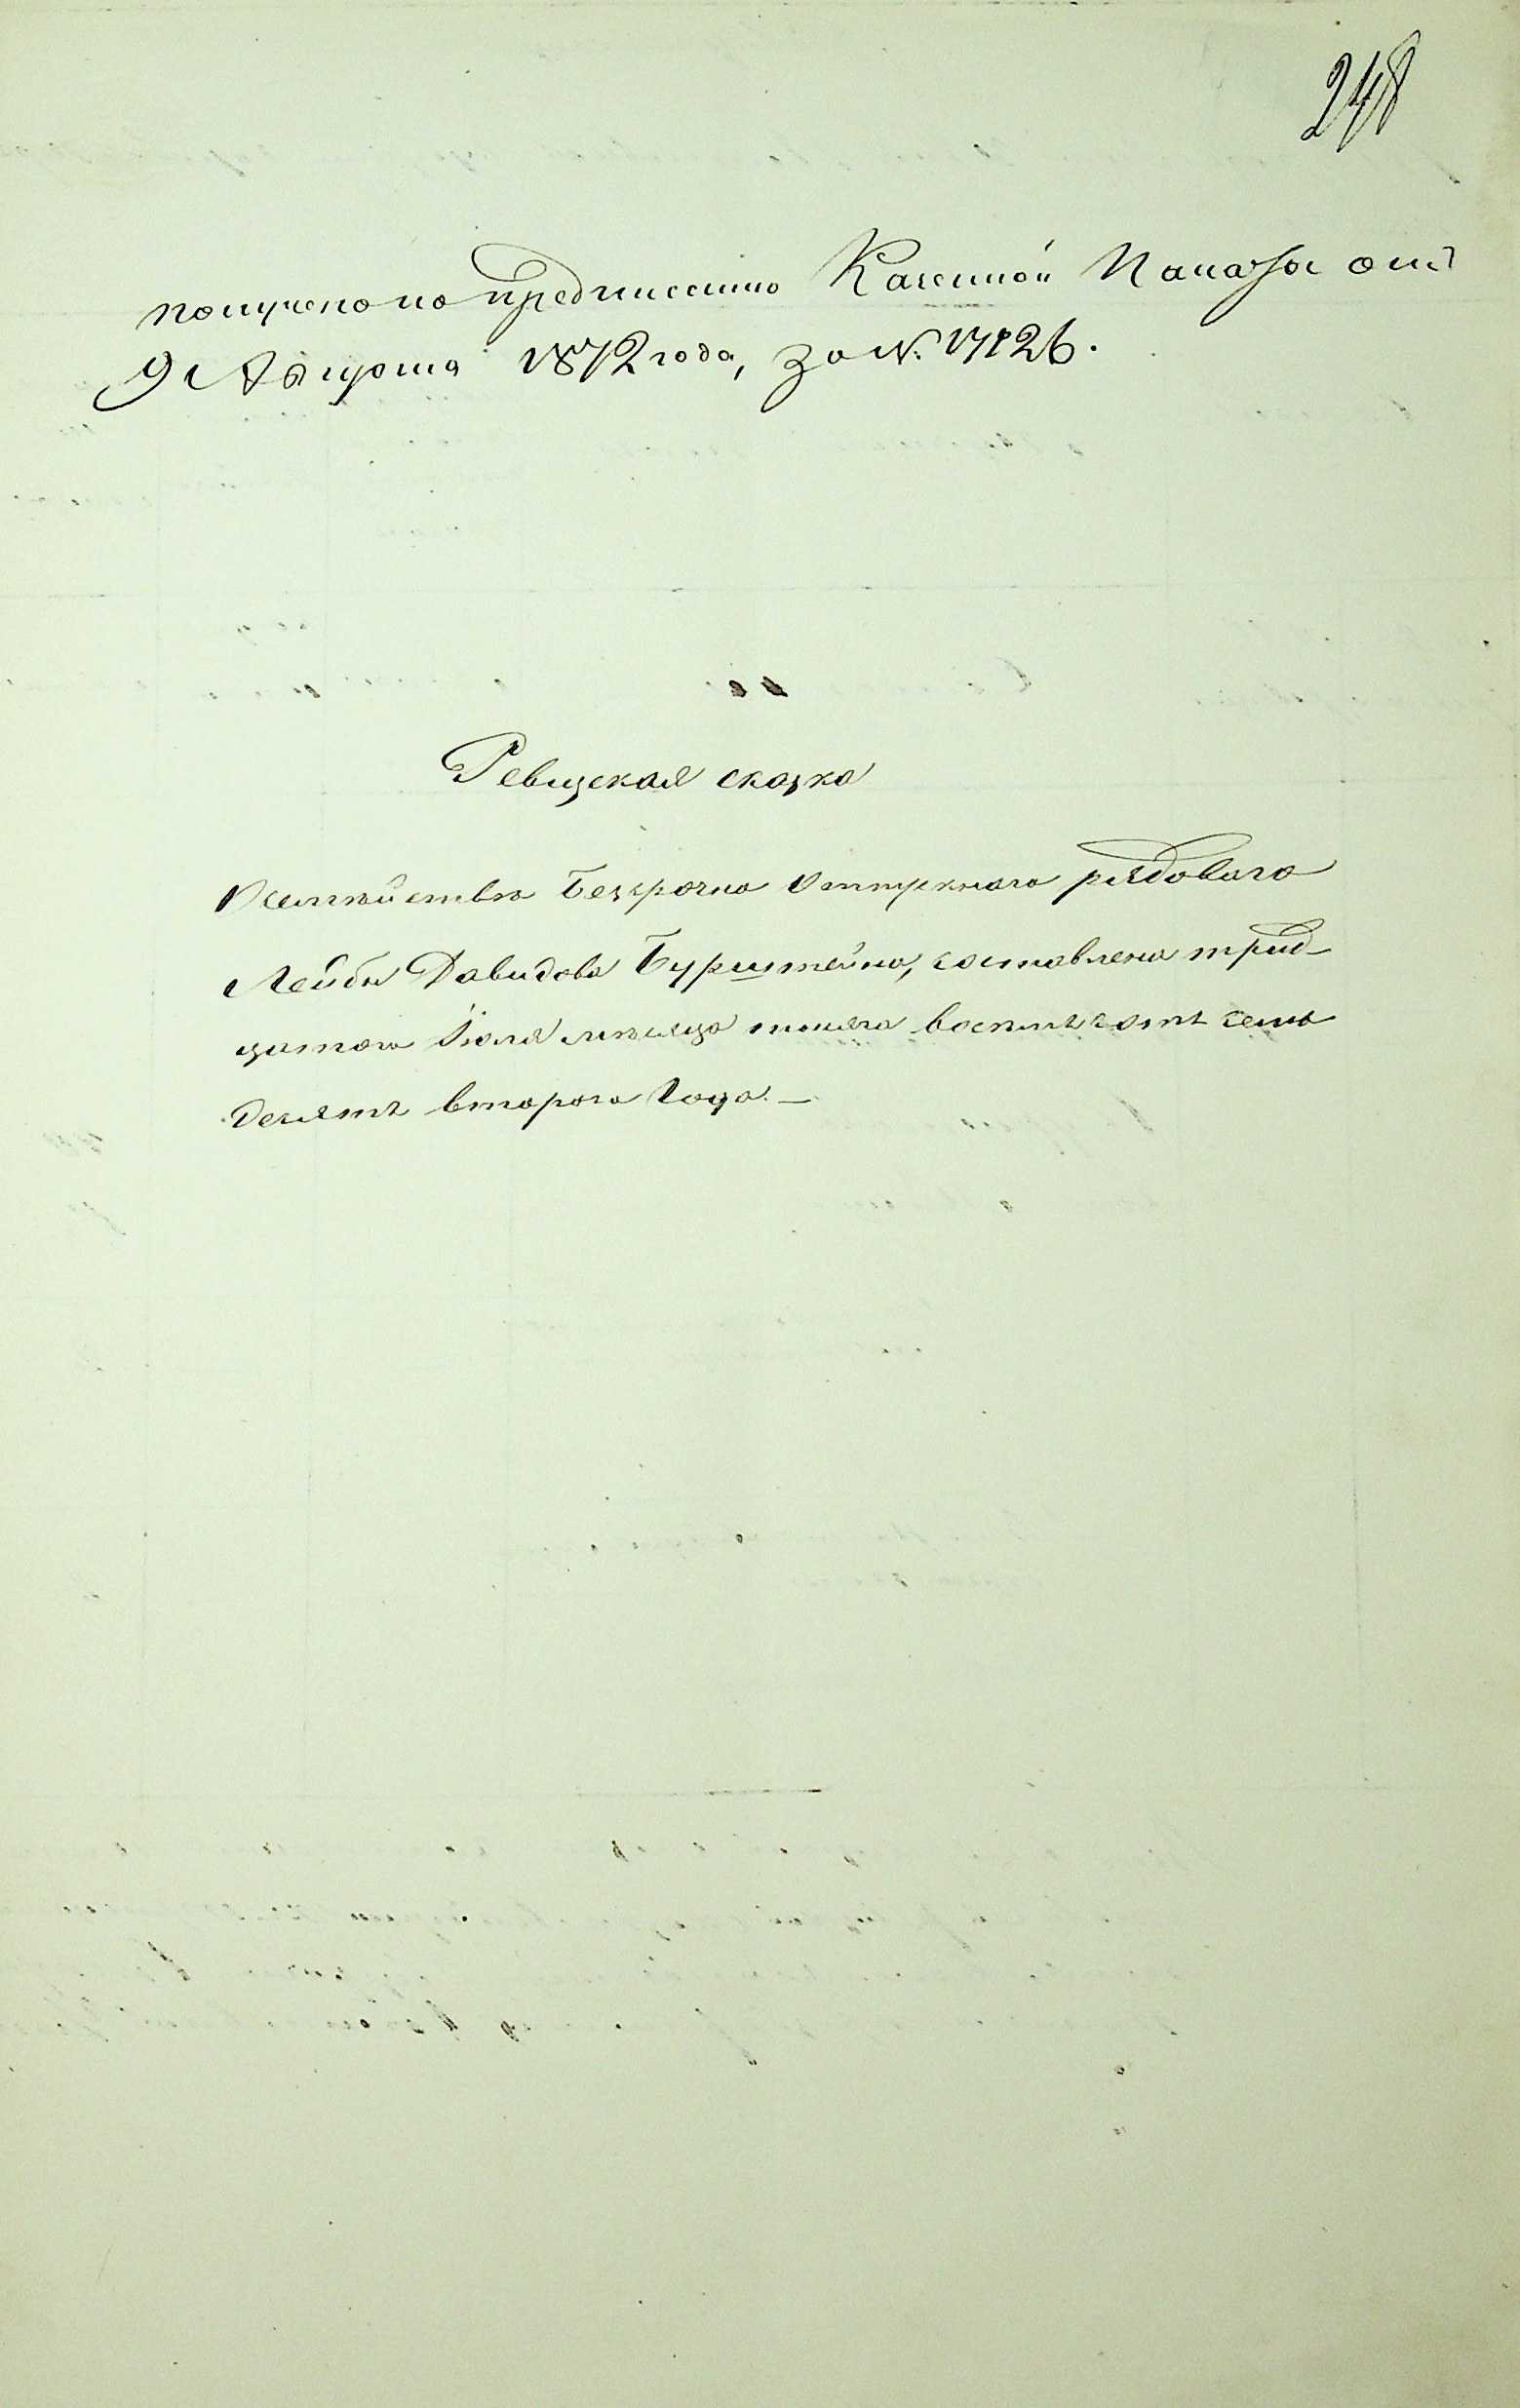 248
получено по предписанію Казенной Палаты отъ
9 Августа 1872 года, за № 17126.
Ревизская сказка
О семѣйствѣ безсрочно отпускнаго рядоваго
Лейбы Давидова Бурштейна, составлена трид-
цатого Іюля мѣсяца тысяча восемьсотъ семь
десятъ второго года. —